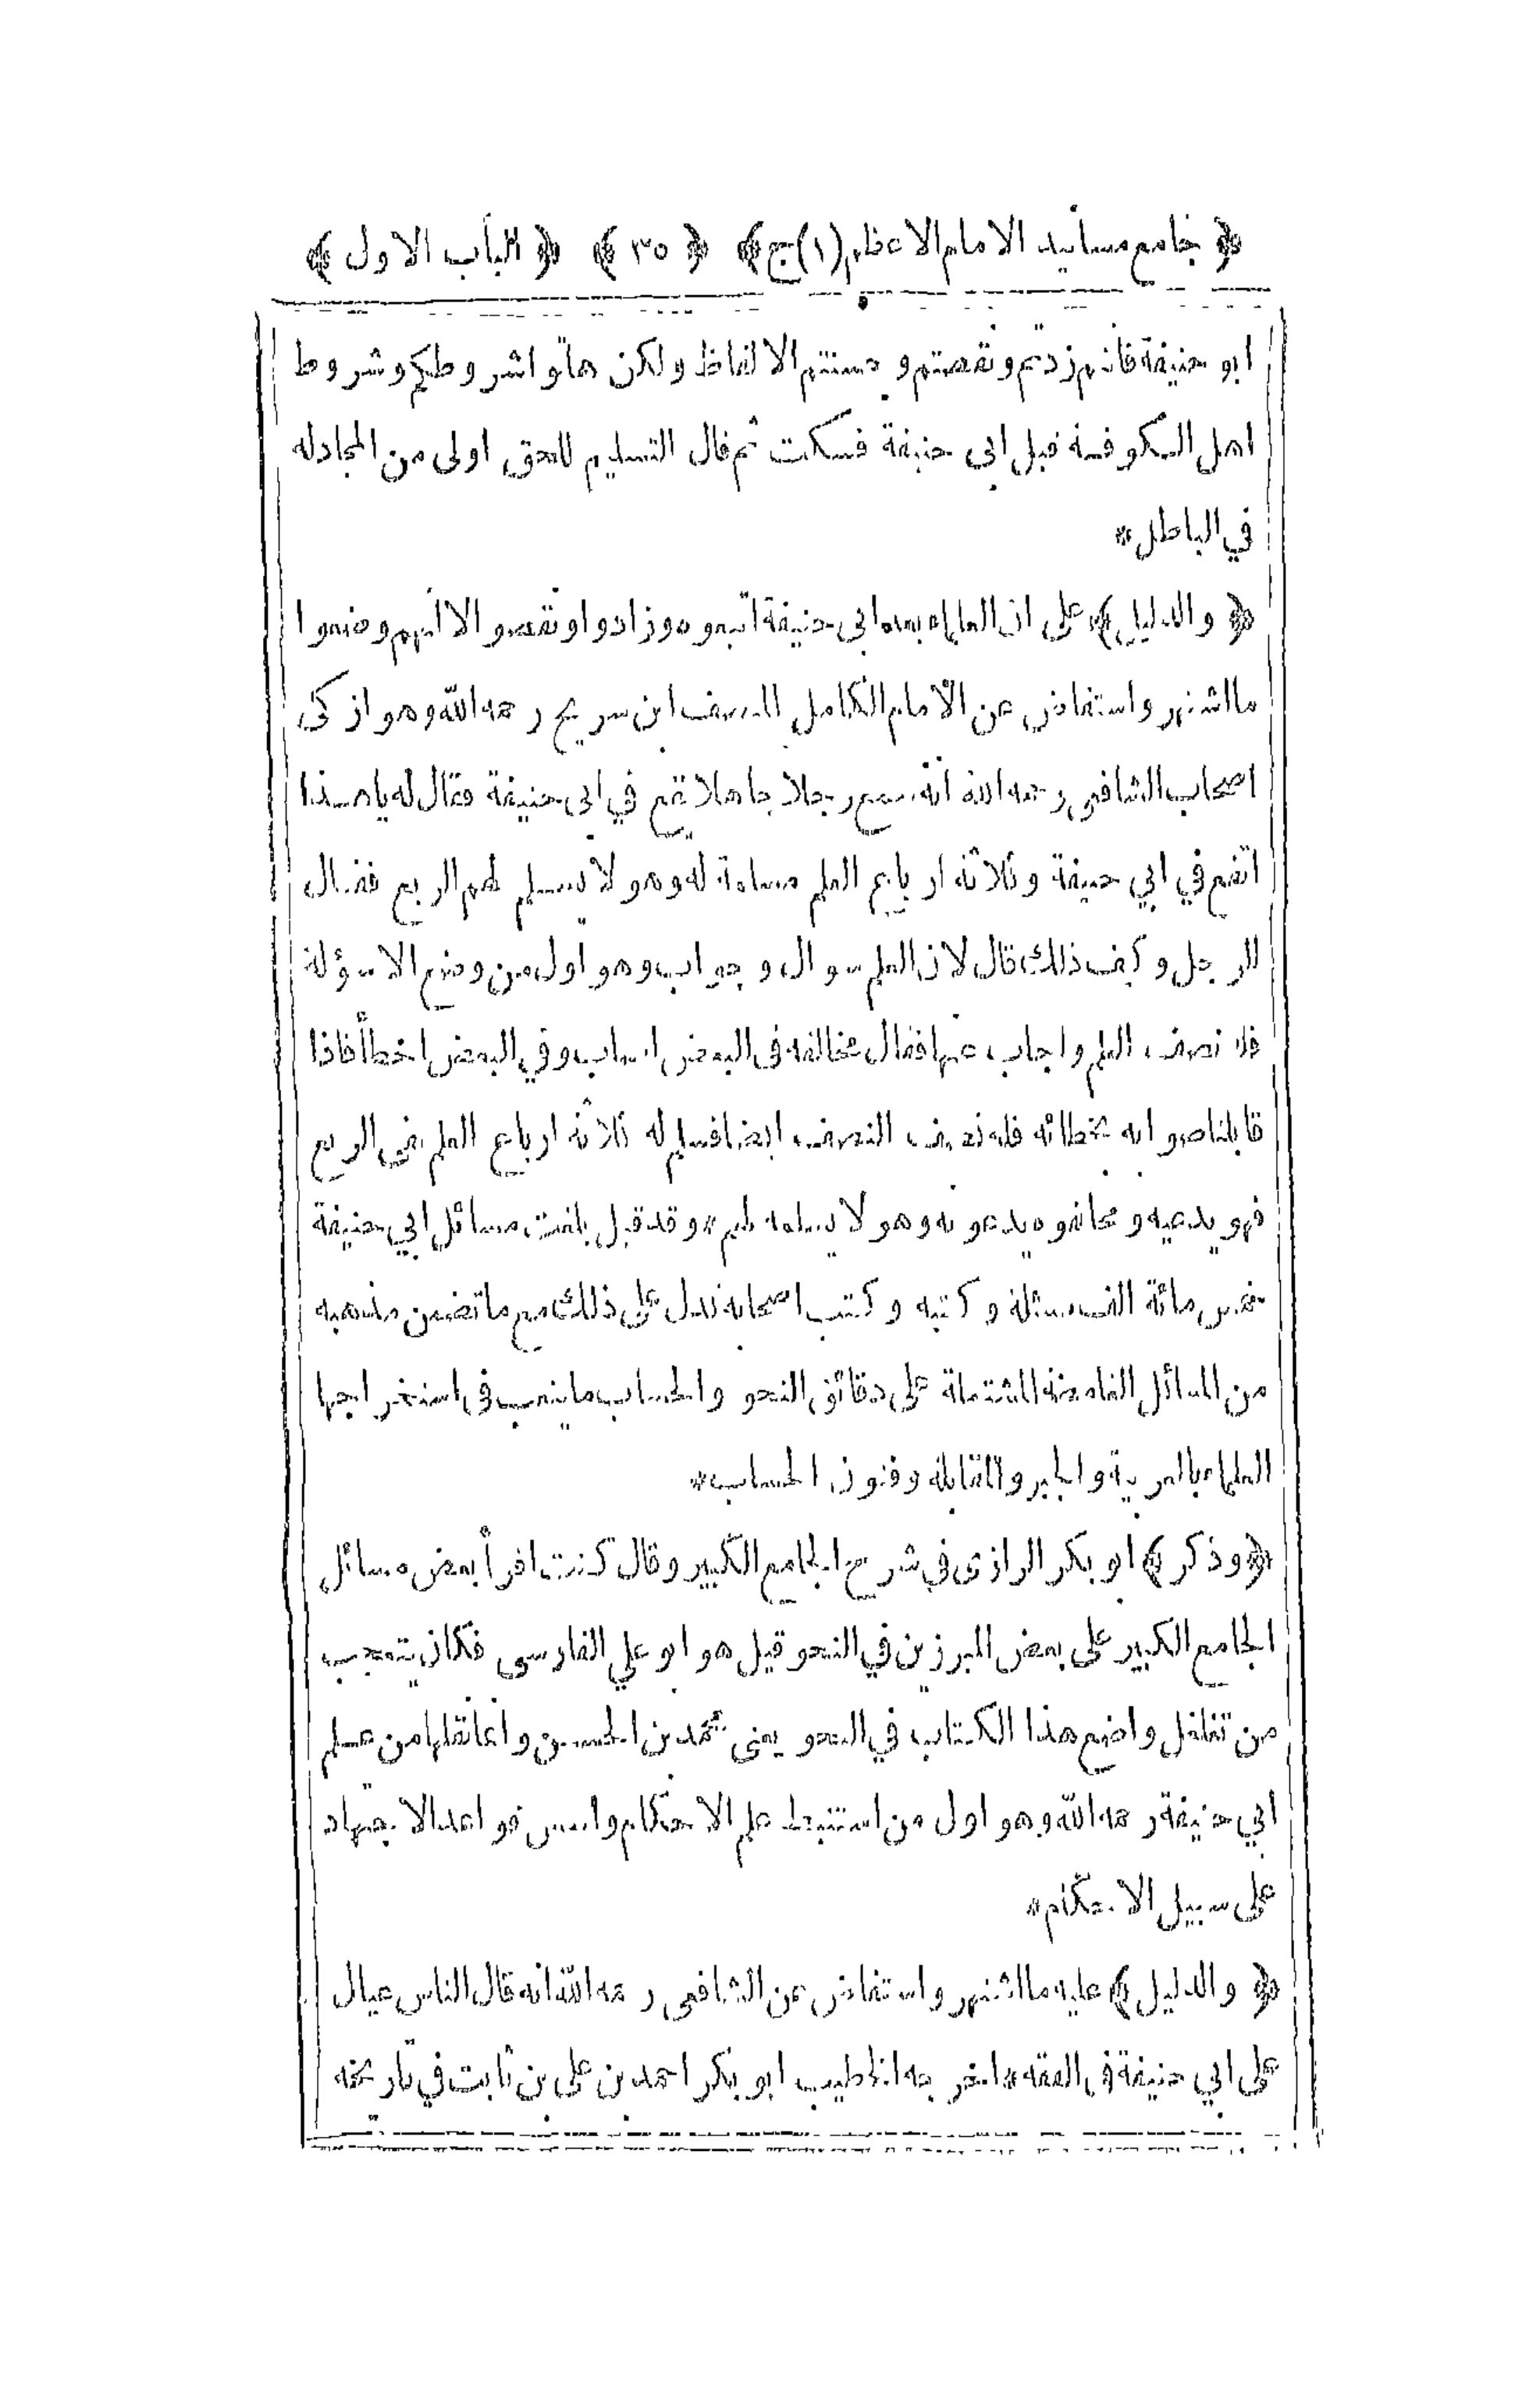 ﴿ جامع مسانيد الامام الاعظم (١) ج ﴾ ﴿ ٣٥ ﴾ ﴿ الباب الاول ﴾
ابو حنيفة فانتم زدتم ونقصتم وحسنتم الالفاظ ولكن هاتوا شروطكم وشروط
اهل الكوفة قبل ابى حنيفة فسكت ثم قال التسليم للحق اولى من المجادله
في الباطل *
﴿ والدليل ﴾ على ان العلماء بعد ابى حنيفة اتبعوه وزادوا ونقصوا الا انهم وضعوا
ما اشتهر واستفاض عن الامام الكامل المنصف ابن سريج رحمه الله وهو ازكى
اصحاب الشافعى رحمه الله انه سمع رجلا جاهلا يقع في ابى حنيفة فقال له يا هذا
اتقع في ابي حنيفة وثلاثة ارباع العلم مسلمة له وهو لا يسلم لهم الربع فقال
الرجل وكيف ذلك قال لان العلم سوال وجواب وهو اول من وضع الاسؤلة
فله نصف العلم واجاب عنها فقال مخالفه فى البعض اصاب وفي البعض اخطأ فاذا
قابلنا صوابه بخطائه فله نصف النصف ايضا فسلم له ثلاثة ارباع العلم بقى الربع
فهو يدعيه ومخالفوه يدعونه وهو لا يسلمه لهم * وقد قيل بلغت مسائل ابي حنيفة
خمس مائة الف مسئلة وكتبه وكتب اصحابه تدل على ذلك مع ما تضمن مذهبه
من المسائل الغامضة المشتملة على دقائق النحو والحساب ما يتعب فى استخراجها
العلماء بالعربية والجبر والمقابلة وفنون الحساب *
﴿ وذكر ﴾ ابو بكر الرازى في شرح الجامع الكبير وقال كنت اقرأ بعض مسائل
الجامع الكبير على بعض المبرزين في النحو قيل هو ابو علي الفارسى فكان يتعجب
من تغلغل واضع هذا الكتاب في النحو يعنى محمد بن الحسن وانما نقلها من علم
ابي حنيفة رحمه الله وهو اول من استنبط علم الاحكام واسس قواعد الاجتهاد
على سبيل الاحكام *
﴿ والدليل ﴾ عليه ما اشتهر واستفاض عن الشافعى رحمه الله انه قال الناس عيال
على ابي حنيفة فى الفقه * اخرجه الخطيب ابو بكر احمد بن على بن ثابت في تاريخه